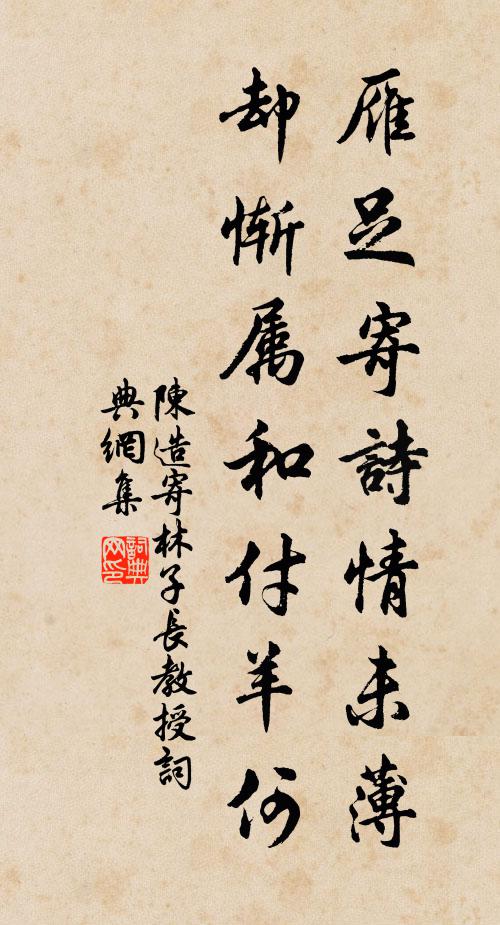 雁足寄詩情未薄
却慚属和付羊何
陳造寄林子長教授詞
典網集
詞典网印